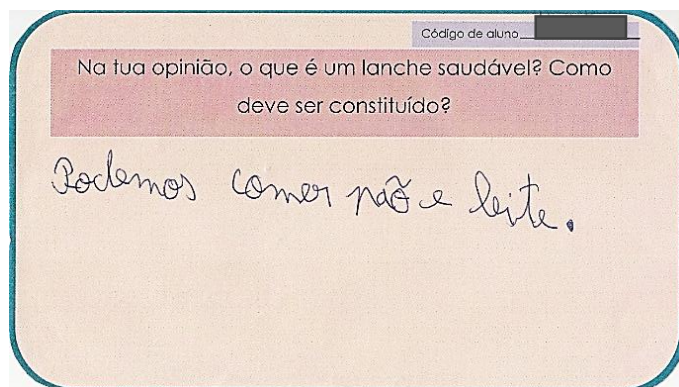 Código de aluno
Na tua opinião, o que é um lanche saudável? Como
deve ser constituído?
Podemos comer pão e leite.